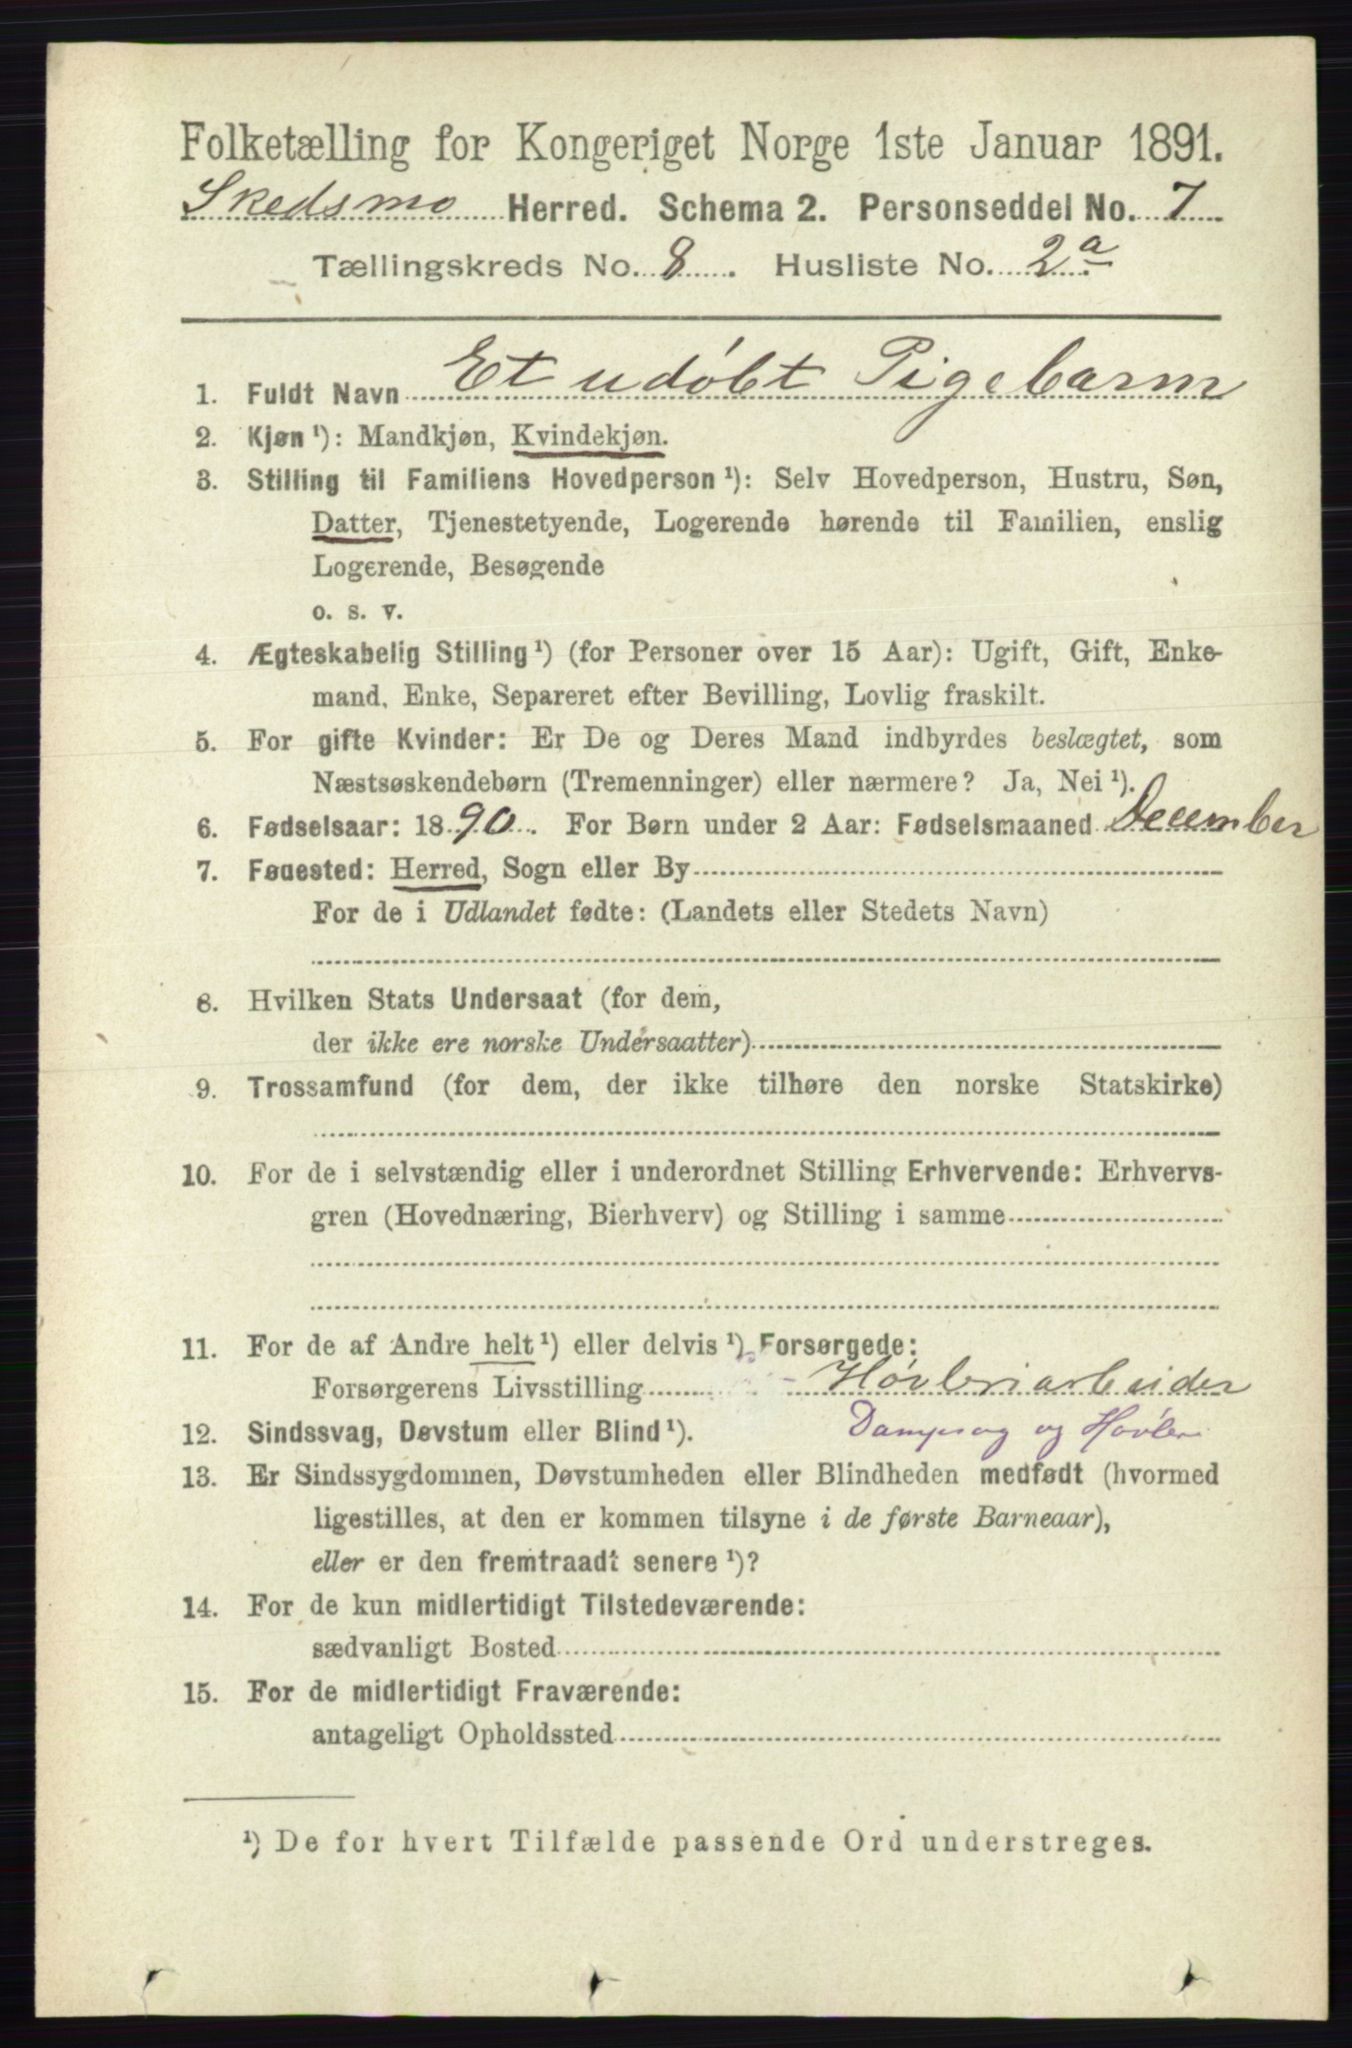 Folketælling for Kongeriget Norge 1ste Januar 1891.
Skedsmo Herred. Schema 2. Personseddel No. 7
Tællingskreds No. 8. Husliste No. 2a
1. Fuldt Navn Et udøbt Pigebarn
2. Kjøn ¹): Mandkjøn, Kvindekjøn.
3. Stilling til Familiens Hovedperson ¹): Selv Hovedperson, Hustru, Søn,
Datter, Tjenestetyende, Logerende hørende til Familien, enslig
Logerende, Besøgende
o. s. v.
4. Ægteskabelig Stilling ¹) (for Personer over 15 Aar): Ugift, Gift, Enke-
mand, Enke, Separeret efter Bevilling, Lovlig fraskilt.
5. For gifte Kvinder: Er De og Deres Mand indbyrdes beslægtet, som
Næstsøskendebørn (Tremenninger) eller nærmere? Ja, Nei ¹).
6. Fødselsaar: 1890. For Børn under 2 Aar: Fødselsmaaned December
7. Fødested: Herred, Sogn eller By
For de i Udlandet fødte: (Landets eller Stedets Navn)
8. Hvilken Stats Undersaat (for dem,
der ikke ere norske Undersaatter)
9. Trossamfund (for dem, der ikke tilhøre den norske Statskirke)
10. For de i selvstændig eller i underordnet Stilling Erhvervende: Erhvervs-
gren (Hovednæring, Bierhverv) og Stilling i samme
11. For de af Andre helt ¹) eller delvis ¹) Forsørgede:
Forsørgerens Livsstilling Høvleriarbeider
12. Sindssvag, Døvstum eller Blind ¹). Dampsag og Høvleri
13. Er Sindssygdommen, Døvstumheden eller Blindheden medfødt (hvormed
ligestilles, at den er kommen tilsyne i de første Barneaar),
eller er den fremtraadt senere ¹)?
14. For de kun midlertidigt Tilstedeværende:
sædvanligt Bosted
15. For de midlertidigt Fraværende:
antageligt Opholdssted
¹) De for hvert Tilfælde passende Ord understreges.